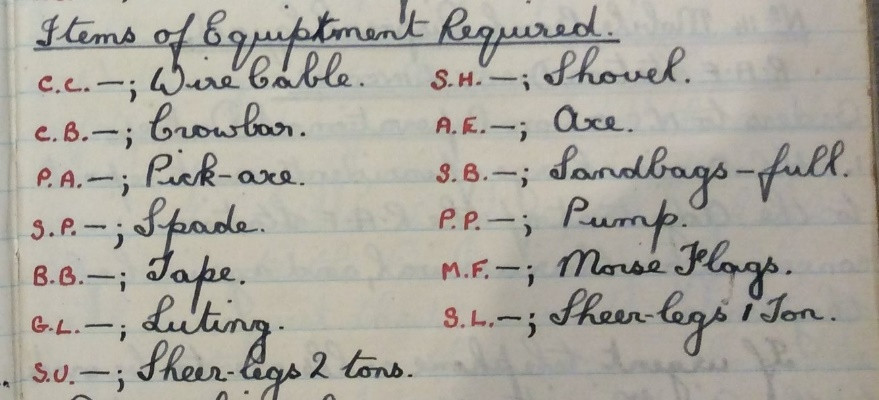 Items of Equiptment Required.
C.C. —; Wire Cable. S.H. —; Shovel.
C.B. —; Crowbar. A.E. —; Axe.
P.A. —; Pick-axe. S.B. —; Sandbags – full.
S.P. —; Spade. P.P. —; Pump.
B.B. —; Tape. M.F. —; Morse Flags.
G.L. —; Luting. S.L. —; Sheer-legs 1 Ton.
S.U. —; Sheer-legs 2 tons.